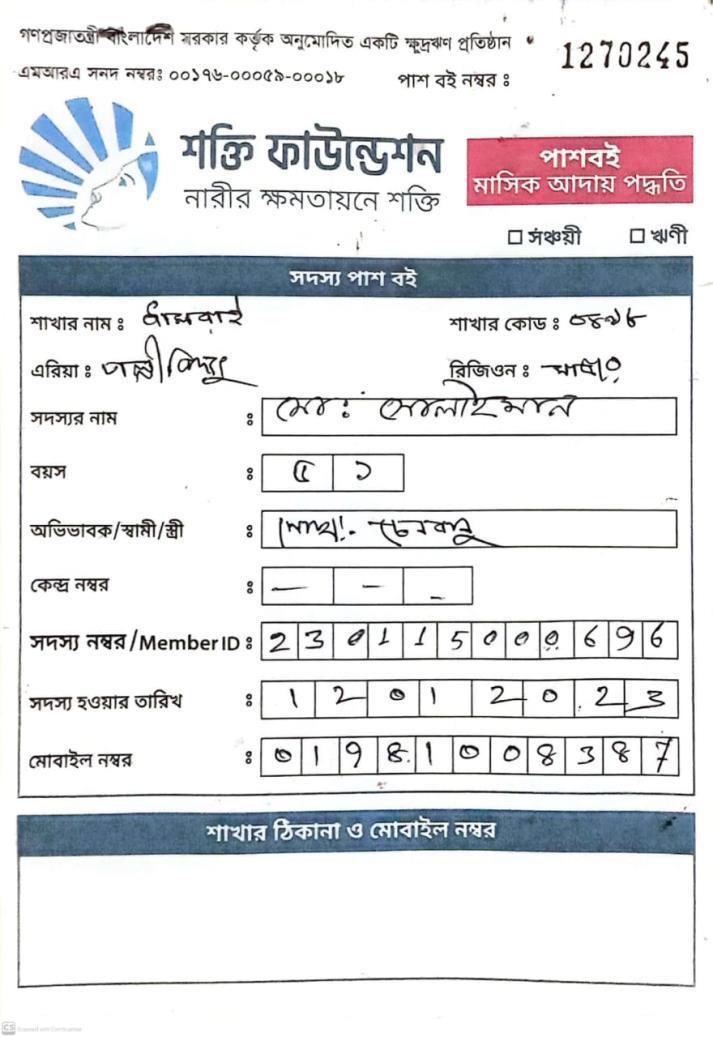 গণপ্রজাতন্ত্রী বাংলাদেশ সরকার কর্তৃক অনুমোদিত একটি ক্ষুদ্রঋণ প্রতিষ্ঠান
1270245
এমআরএ সনদ নম্বরঃ ০০১৭৬-০০০৫৯-০০০১৮ পাশ বই নম্বর ঃ
শক্তি ফাউন্ডেশন
নারীর ক্ষমতায়নে শক্তি
পাশবই
মাসিক আদায় পদ্ধতি
সঞ্চয়ী ঋণী
সদস্য পাশ বই
শাখার নাম ঃ ধামরাই শাখার কোড ঃ
এরিয়া ঃ পল্লী বিদ্যুৎ রিজিওন ঃ
সদস্যর নাম ঃ মোঃ সোলাইমান
বয়স ঃ ৫১
অভিভাবক/স্বামী/স্ত্রী ঃ
কেন্দ্র নম্বর ঃ — – _
সদস্য নম্বর/Member ID ঃ 2301115000696
সদস্য হওয়ার তারিখ ঃ 12012023
মোবাইল নম্বর ঃ 01981008387
শাখার ঠিকানা ও মোবাইল নম্বর
CS Scanned with CamScanner